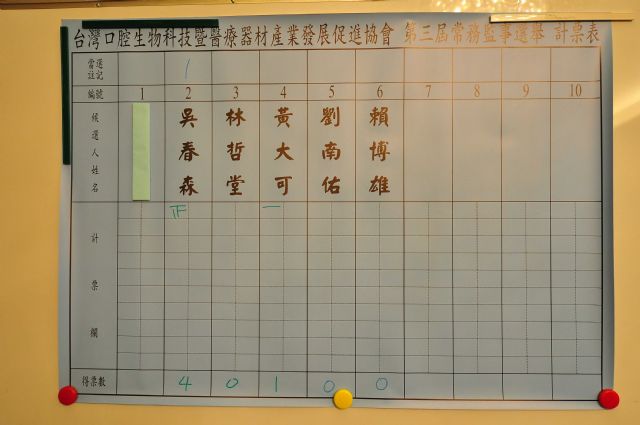 台灣口腔生物科技暨醫療器材產業發展促進協會 第三屆常務監事選舉 計票表
當選註記 1
編號 1 2 3 4 5 6 7 8 9 10
候選人姓名 吳春森 林哲堂 黃大可 劉南佑 賴博雄
計票欄 正 一
得票數 4 0 1 0 0